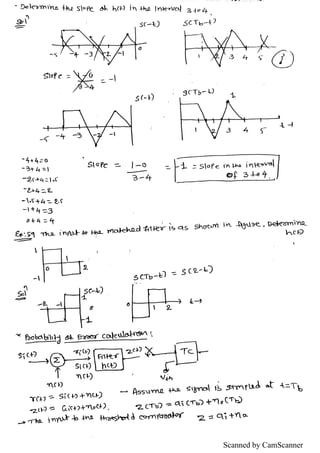 - Determine the slope of h(t) in the Interval 3 to 4
Sol:
s(-t)
s(Tb-t)
-5 -4 -3 -2 -1
1 2 3 4 5
1
slope = 1-0 / 3-4 = -1
s(-t)
s(Tb-t)
1
-5 -4 -3 -2 -1
1 2 3 4 5 t→
-4+4=0
-3+4=1
-2.5+4=1.5
-2+4=2
-1.5+4=2.5
-1+4=3
0+4=4
slope = 1-0 / 3-4 = -1 = slope in the interval of 3 to 4.
Ex:59 The input to the matched filter is as shown in figure, Determine h(t)
1
0 1 2
-1
s(Tb-t) = s(2-t)
Sol
s(-t)
-2 -1 0
1
-1
0 1 2 t→
* Probability of Error calculation:
si(t) Σ r(t) Filter h(t) z(t) TC
si(t)
n(t) n(t) Vth
r(t) = si(t)+n(t) - Assume the signal is sampled at t=Tb
z(t) = ai(t)+no(t), z(Tb) = ai(Tb)+no(Tb)
→ The input to the threshold comparator z = ai+no
Scanned by CamScanner